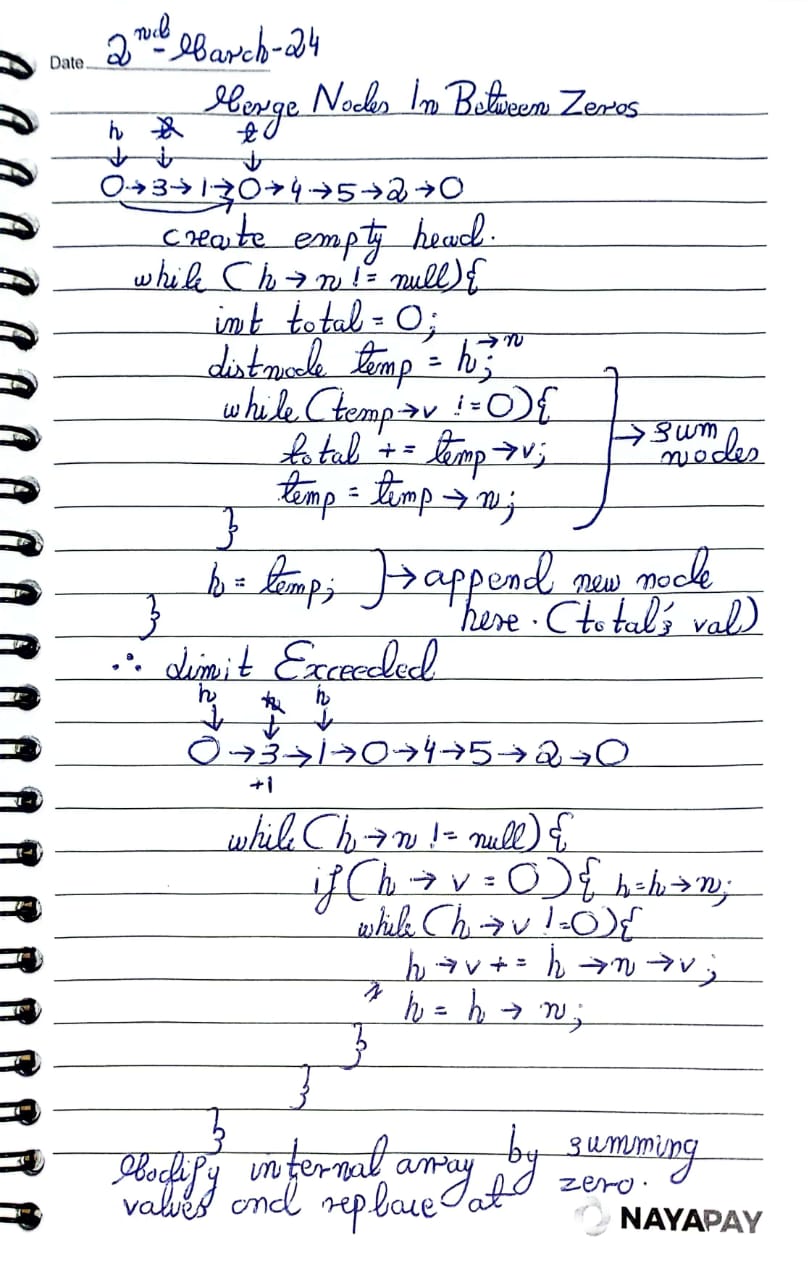 Date 2nd-March-24
Merge Nodes In Between Zeros
h t
↓ ↓ ↓
0→3→1→0→4→5→2→0
create empty head.
while (h→n != null){
int total = 0;
listnode temp = h→n;
while (temp→v !=0){
total += temp→v;
temp = temp→n;
}
→ sum nodes
h = temp; }→ append new node
} here. (total's val)
∴ Limit Exceeded
h h
↓ ↓ ↓
0→3→1→0→4→5→2→0
+1
while (h→n != null){
if (h→v = 0){ h=h→n;
while (h→v !=0){
h→v += h→n→v;
h = h→n;
}
}
}
Modify internal array by summing
values and replace at zero.
NAYAPAY